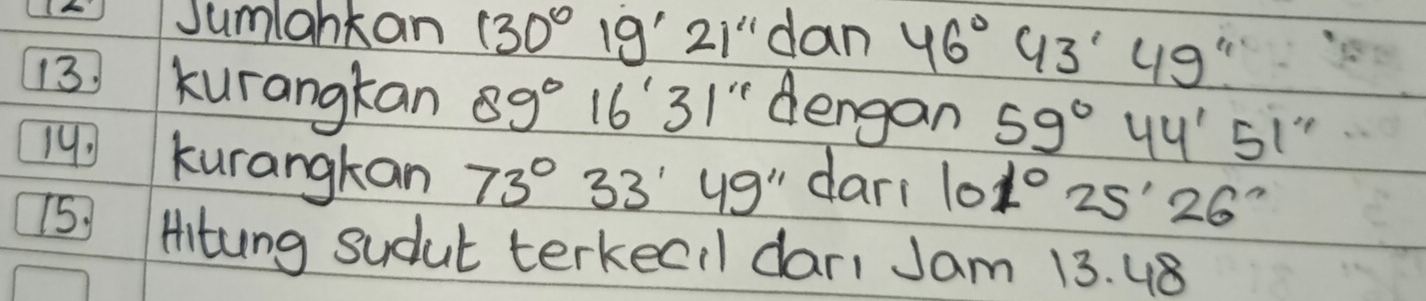 12. Jumlahkan 130° 19' 21" dan 46° 43' 49"
13. kurangkan 89° 16' 31" dengan 59° 44' 51"
14. kurangkan 73° 33' 49" dari 101° 25' 26"
15. Hitung sudut terkecil dari Jam 13.48